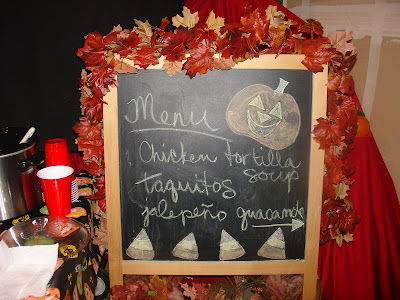 Menu
Chicken tortilla
soup
taquitos
jalepeño guacamole